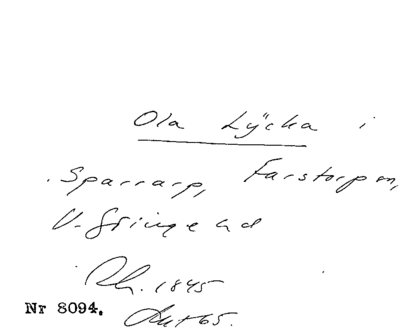 Ola Lÿcka i
Sparrarp, Farstorp sn,
V. Göinge hd
1845
Nr 8094.